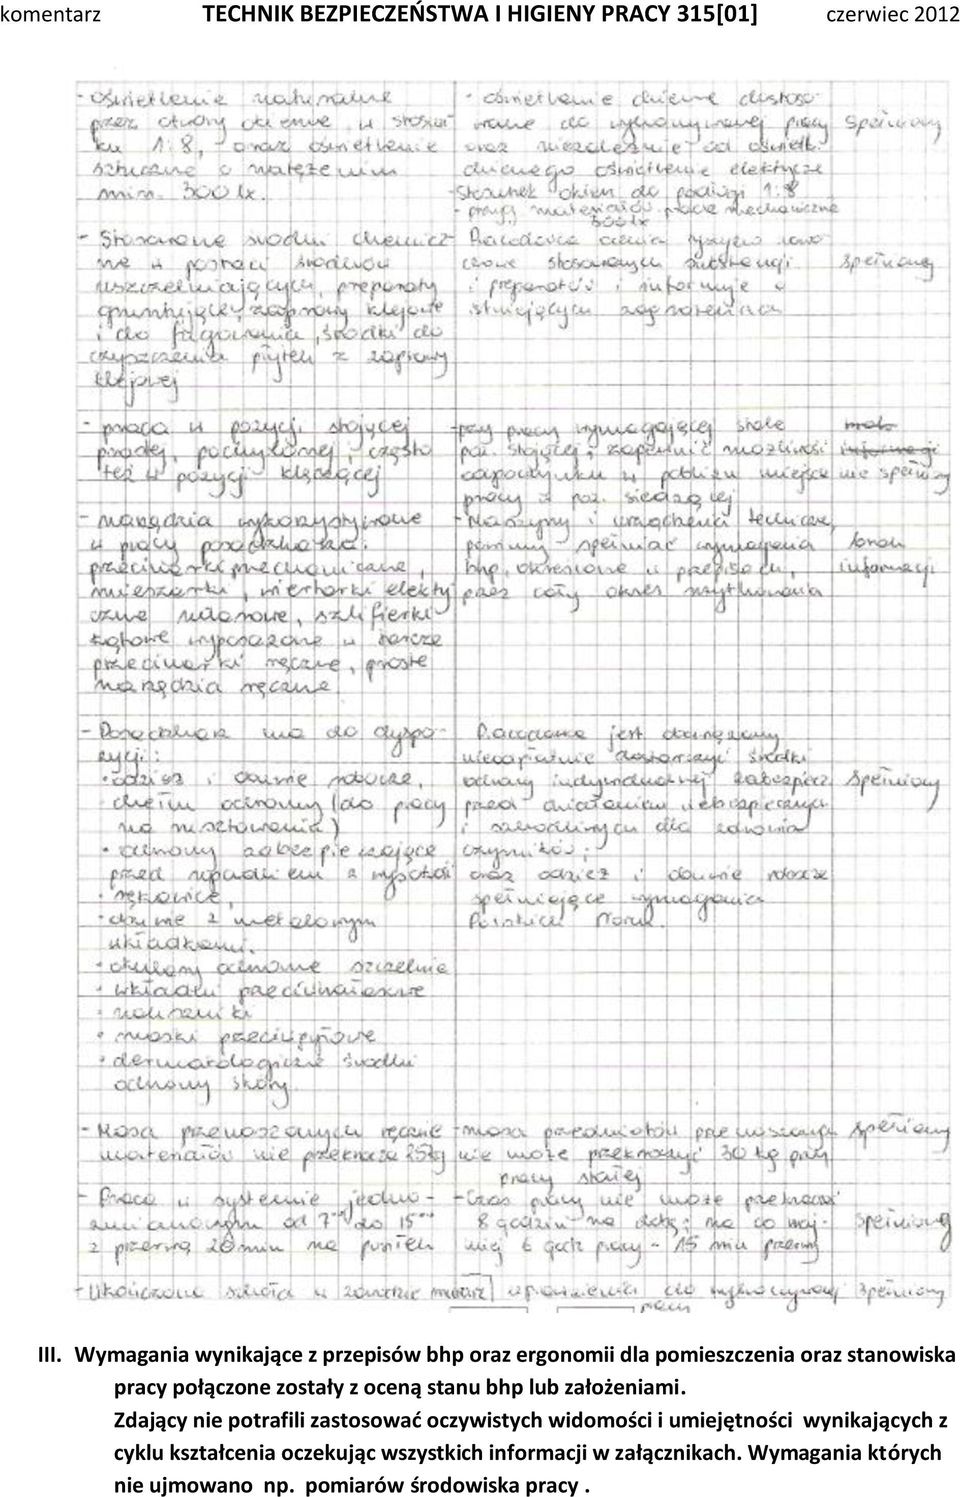 komentarz TECHNIK BEZPIECZEŃSTWA I HIGIENY PRACY 315[01] czerwiec 2012
- oświetlenie naturalne - oświetlenie dzienne dostoso-
przez otwory okienne w stosun- wane do wykonywanej pracy spełniony
ku 1:8, oraz oświetlenie oraz niezależnie od oświetl.
sztuczne o natężeniu dziennego oświetlenie elektrycz
min. 300 lx. - stosunek okien do podłogi 1:8
- przy materiałów mechaniczne
500 lx
- Stosowane środki chemicz- Pracodawca ocenia ryzyko zawo-
ne w postaci środków dowe stosowanych substancji spełniony
uszczelniających, preparaty i preparatów i informuje o
gruntujące, zaprawy klejowe istniejących zagrożeniach
i do fugowania, środki do
czyszczenia płytek z zaprawy
klejowej
- praca w pozycji stojącej - przy pracy wymagającej stale
pochylonej, często poz. stojącej, zapewnić możliwość
też w pozycji klęczącej odpoczynku w pobliżu miejsca nie spełniony
pracy w poz. siedzącej
- narzędzia wykorzystywane - Maszyny i urządzenia techniczne,
w pracy posadzkarza: powinny spełniać wymagania brak
przecinarki mechaniczne, bhp, określone w przepisach, informacji
mieszarki, wiertarki elektry przez cały okres użytkowania
czne udarowe, szlifierki
kątowe wyposażone w tarcze
przecinarki ręczne, proste
narzędzia ręczne
- Posadzkarz ma do dyspo- Pracodawca jest obowiązany
zycji: nieodpłatnie dostarczyć środki
• odzież i obuwie robocze, ochrony indywidualnej zabezpiecz spełniony
• hełm ochronny (do pracy przed działaniem niebezpiecznych
na rusztowaniu) i szkodliwych dla zdrowia
• ochrony zabezpieczające czynników;
przed upadkiem z wysokości oraz odzież i obuwie robocze
• rękawice, spełniające wymagania
• obuwie z metalowym Polskich Norm.
wkładkami.
• okulary ochronne szczelnie
• wkładki przeciwhałasowe
• nauszniki
• maski przeciwpyłowe
• dermatologiczne środki
ochrony skóry.
- Masa przenoszonych ręcznie - masa przedmiotów przenoszonych spełniony
materiałów nie przekracza 25kg nie może przekraczać 30 kg przy
pracy stałej
- Praca w systemie jedno- - Czas pracy nie może przekraczać
zmianowym od 7⁰⁰ do 15⁰⁰ 8 godzin na dobę; na co naj- spełniony
z przerwą 20 min na posiłek mniej 6 godz pracy - 15 min przerwy
- Ukończona szkoła w zawodzie uprawnienia do wykonywanej spełniony
pracy
III. Wymagania wynikające z przepisów bhp oraz ergonomii dla pomieszczenia oraz stanowiska
pracy połączone zostały z oceną stanu bhp lub założeniami.
Zdający nie potrafili zastosować oczywistych widomości i umiejętności wynikających z
cyklu kształcenia oczekując wszystkich informacji w załącznikach. Wymagania których
nie ujmowano np. pomiarów środowiska pracy .